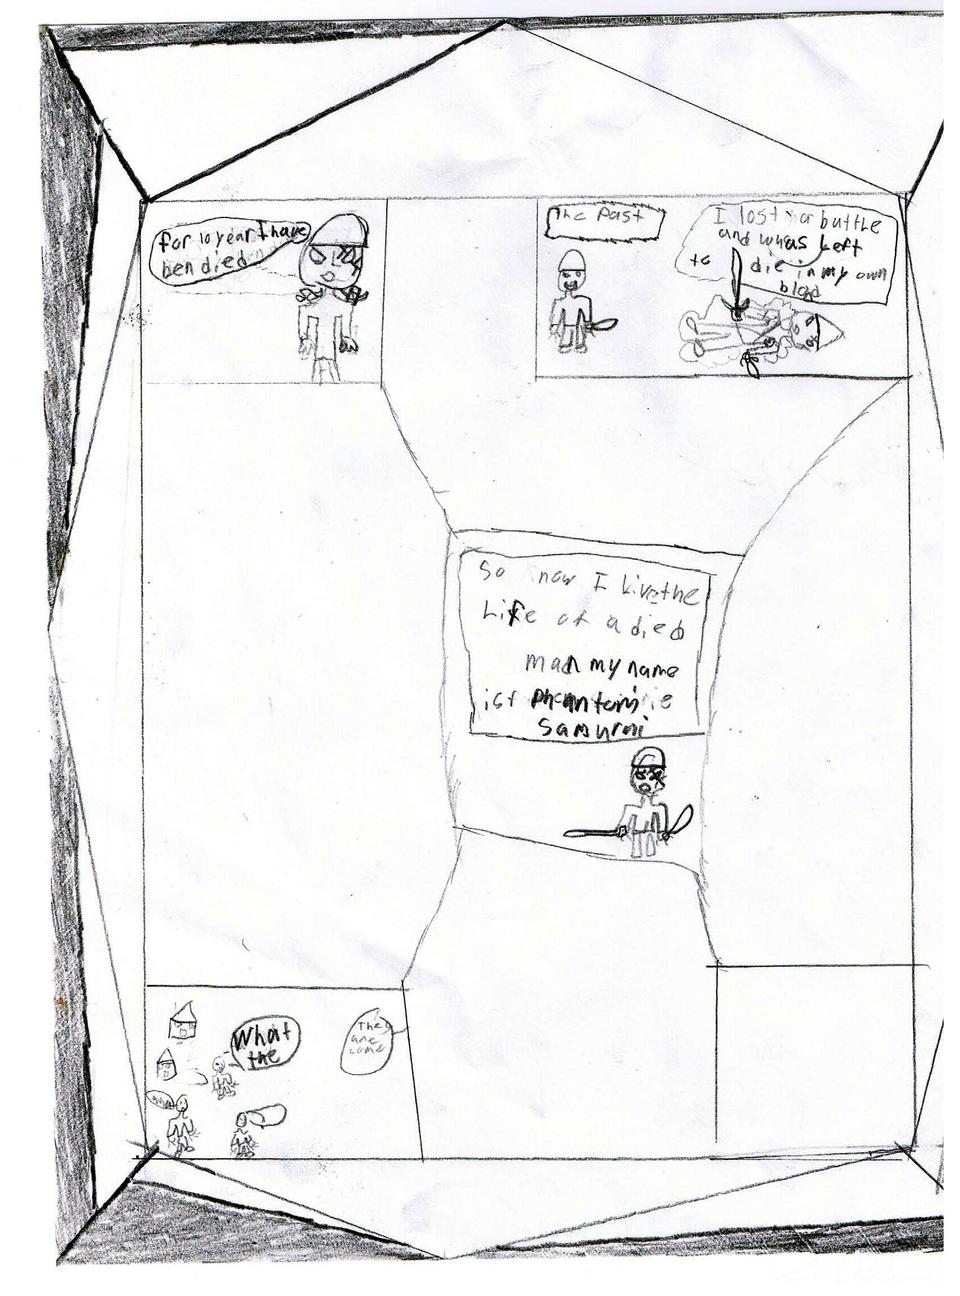 for 10 year I have
ben died
The Past
I lost battle
and whas Left
to die in my own
blod
So know I live the
Life of a died
man my name
ist Phantom
Samurai
What
the
They
are
come